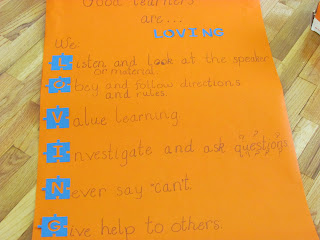 Good learners
are....
LOVING
We:
Listen and look at the speaker
or material.
Obey and follow directions
and rules.
Value learning
Investigate and ask questions
Never say "can't
Give help to others.